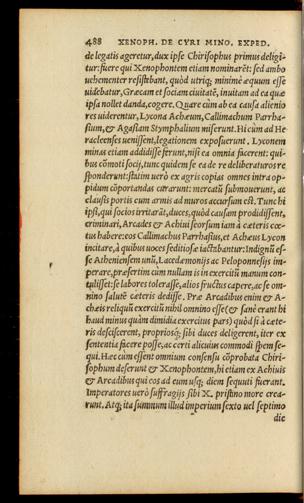 488 XENOPH. DE CYRI MINO. EXPED.
de legatis ageretur, dux ipse Chirisophus primus deligi-
tur: fuere qui Xenophontem etiam nominarēt: sed ambo
uehementer resistebant, quòd utriq; minimè æquum esse
uidebatur, Græcam et sociam ciuitatē, inuitam ad ea quæ
ipsa nollet danda, cogere. Quare cùm ab ea causa alienio
res uiderentur, Lycona Achæum, Callimachum Parrha-
sium, & Agasiam Stymphalium miserunt. Hi cùm ad He
racleenses uenissent, legationem exposuerunt. Lyconem
minas etiam addidisse ferunt, nisi ea omnia facerent: qui-
bus cōmoti socij, tunc quidem se ea de re deliberaturos re
sponderunt: statim uerò ex agris copias omnes intra op-
pidum cōportandas curarunt: mercatū submouerunt, ac
clausis portis cum armis ad muros accursum est. Tunc hi
ipsi, qui socios irritarāt, duces, quòd causam prodidissent,
criminari, Arcades & Achiui seorsum iam à cæteris cœ-
tus habere: eos Callimachus Parrhasius, et Achæus Lycon
incitare, à quibus uoces seditiosæ iactabantur: Indignū es-
se Atheniensem unū, Lacedæmonijs ac Peloponnesijs im-
perare, præsertim cùm nullam is in exercitū manum con-
tulisset: se labores tolerasse, alios fructus capere, ac se om-
nino salutē cæteris dedisse. Præ Arcadibus enim & A-
chæis reliquū exercitū nihil omnino esse (& sanè erant hi
haud minus quàm dimidia exercitus pars) quòd si à cæte-
ris desciscerent, propriosq; sibi duces deligerent, iter ex
sententia facere posse, ac certi alicuius commodi spem se-
qui. Hæc cùm essent omnium consensu cōprobata Chiri-
sophum deserunt & Xenophontem, hi etiam ex Achiuis
& Arcadibus qui cos ad eum usq; diem sequuti fuerant.
Imperatores uerò suffragijs sibi X. pristino more crea-
runt. Atq; ita summum illud imperium sexto uel septimo
die